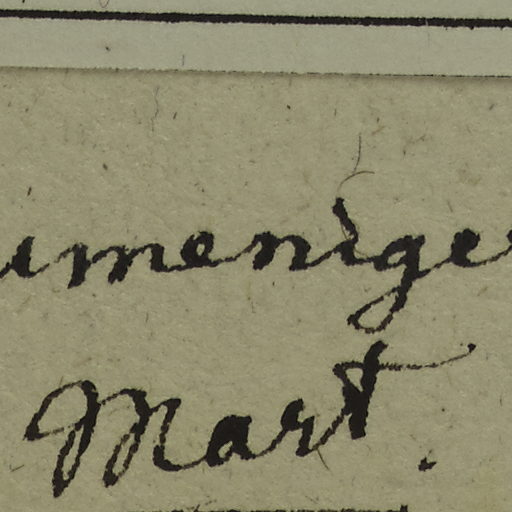 umeniger
Mart.